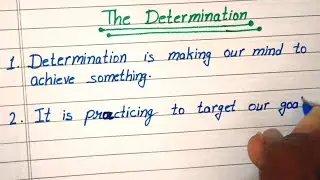 The Determination
1. Determination is making our mind to
achieve something.
2. It is practicing to target our goa